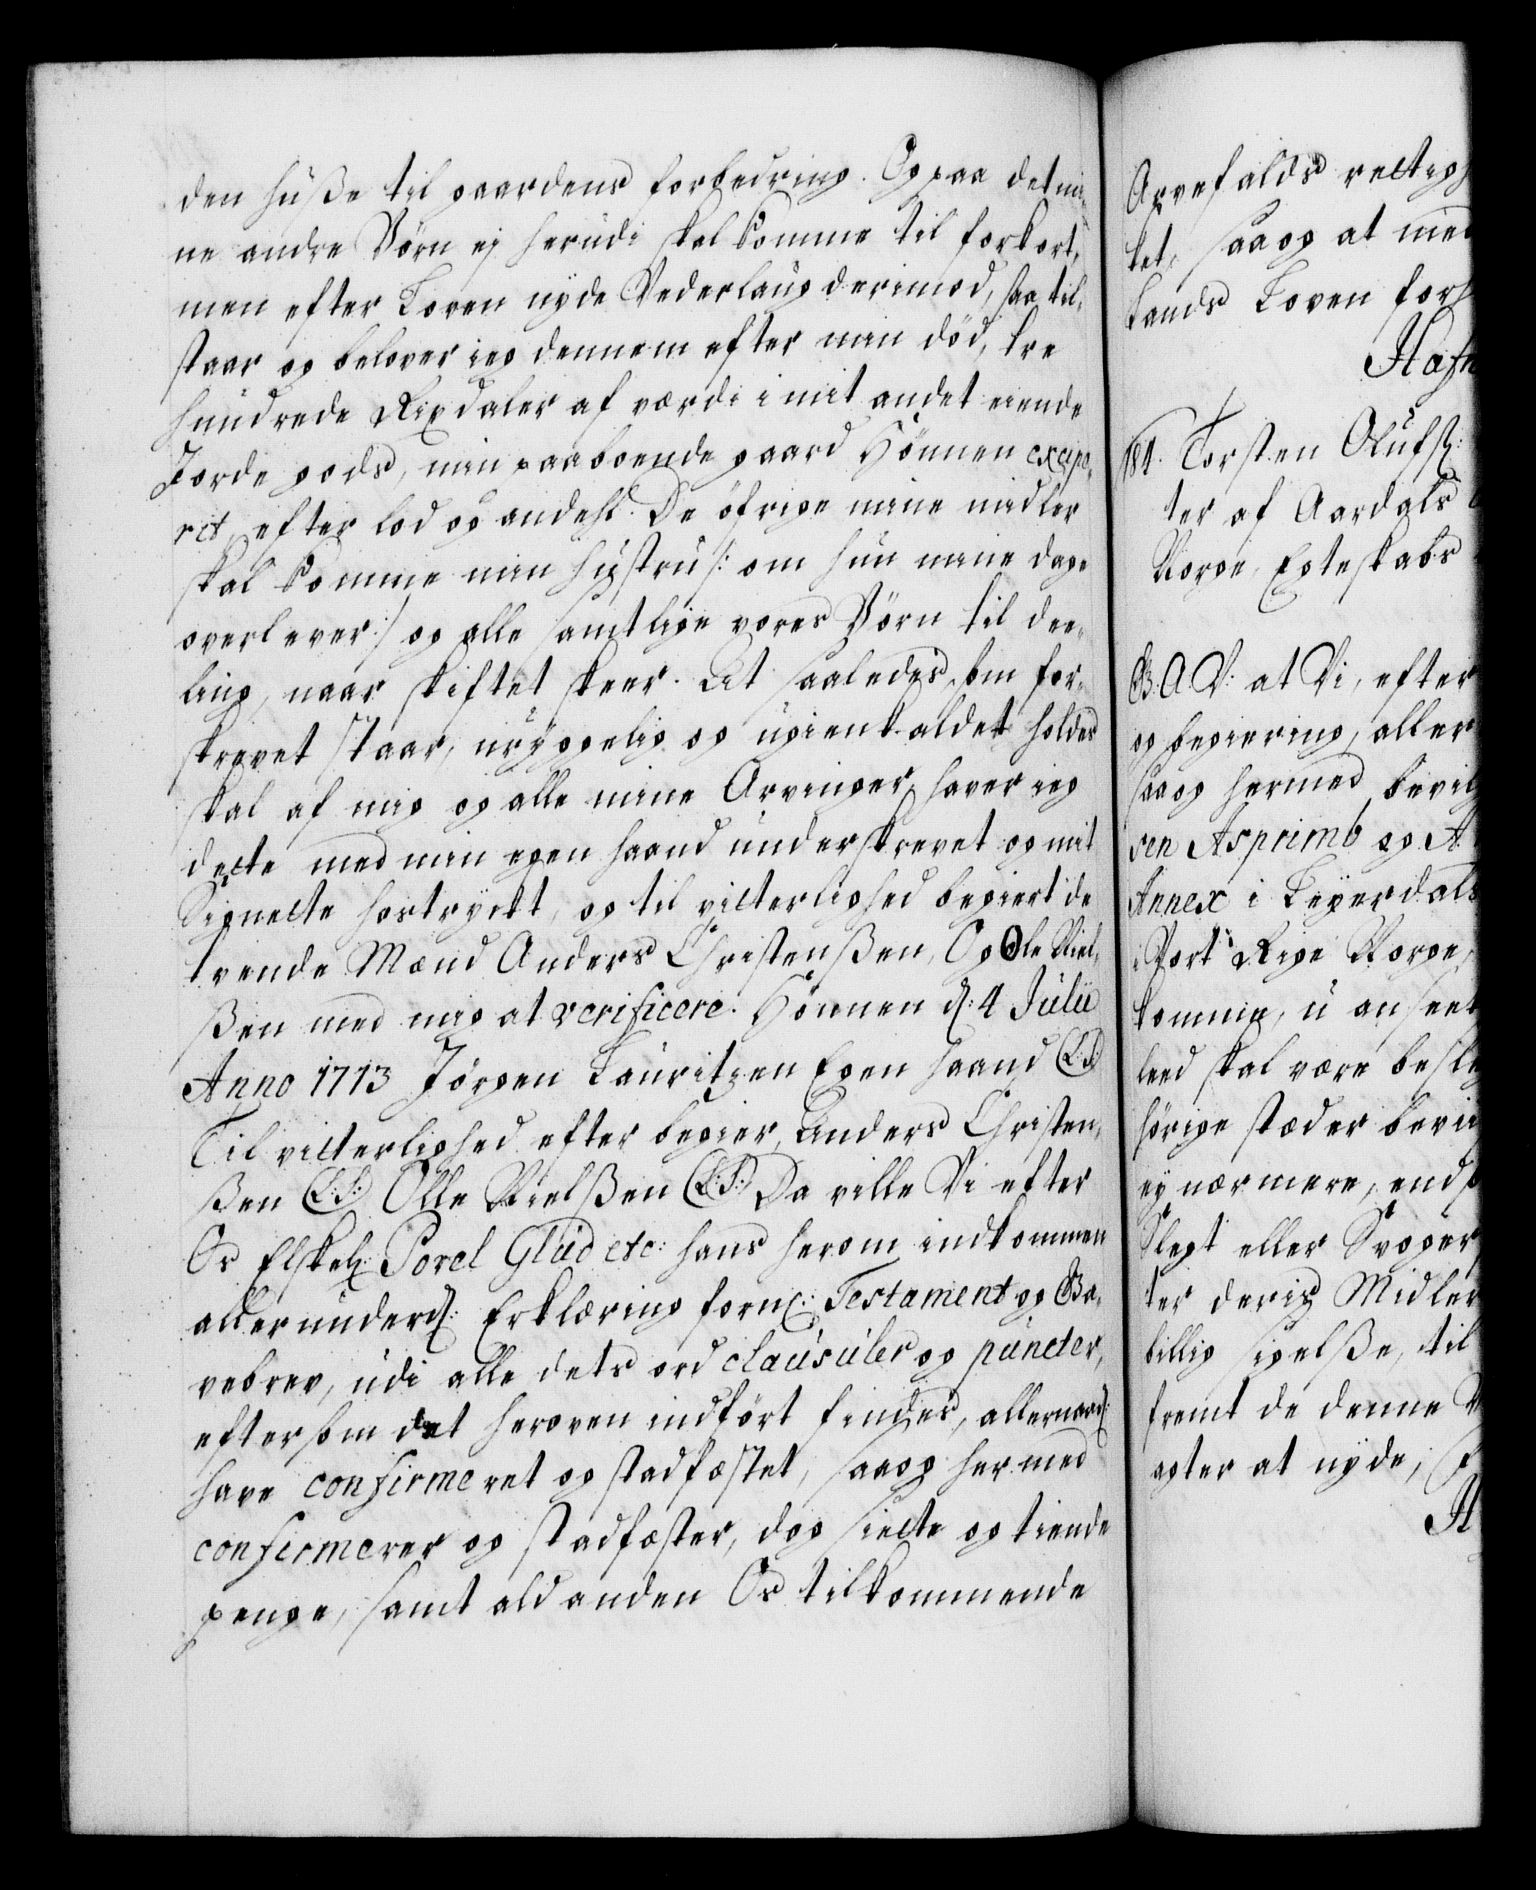 den huße til gaardens forbedring. Og paa det mi-
ne andre Börn ej herudi skal komme til forkort,
men efter Loven nyde Vederlaug derimod, saa til-
staar og belover ieg dennem efter min död, tre
hundrede Rixdaler af værdi i mit andet eiende
Jorde gods, min paaboende gaard Hönnen excipe-
ret, efter lod og andehl. De öfrige mine midler
skal komme min hustru /: om hun mine dage
overlever :/ og alle samtlige vores Börn til dee-
ling, naar skiftet skeer. At saaledes, som for-
skrevet staar, uryggelig og ugienkaldet holdes
skal af mig og alle mine Arvinger, haver ieg
dette med min egen haand underskrevet og mit
Signette hostryckt, og til vitterlighed begiert de
tvende Mænd Anders Christenßen, Og Ole Niel-
ßen med mig at verificere. Hönnen d: 4 Julii
Anno 1713 Jörgen Lauritzen Egen haand (L.S.)
Til vitterlighed efter begier, Anders Christen-
ßen (L:S:) Olle Nielßen (L:S:) Da ville Vi efter
Os Elskel: Povel Glud etc: hans herom indkommen
allerunderd: Erklæring fornd: Testament og Ga-
vebrev, udi alle dets ord clausuler og puncter,
eftersom det heroven indfört findes, allernaad:
have confirmeret og stadfæstet, saa og hermed
confirmerer og stadfæster, dog siette og tiende
penge, samt ald anden Os tilkommende
Arvefalds rettigh
tet, saa og at med
lands Loven forh
Hafn
181. Torsten Olufs:
ter af Aardals
Norge, Egteskabs
G. A. V: at Vi, efter
og begiering, aller
saa og hermed bevilg
sen Asprimb og A
Annex i Leyerdals
i Vort Rige Norge,
komme, u anseet
leed skal være besleg
hörige stæder bevii
ey nærmere, end p
Slegt eller Svoger
ter deris Midler
billig sigelße, til
fremt de denne V
agter at nyde, F
H